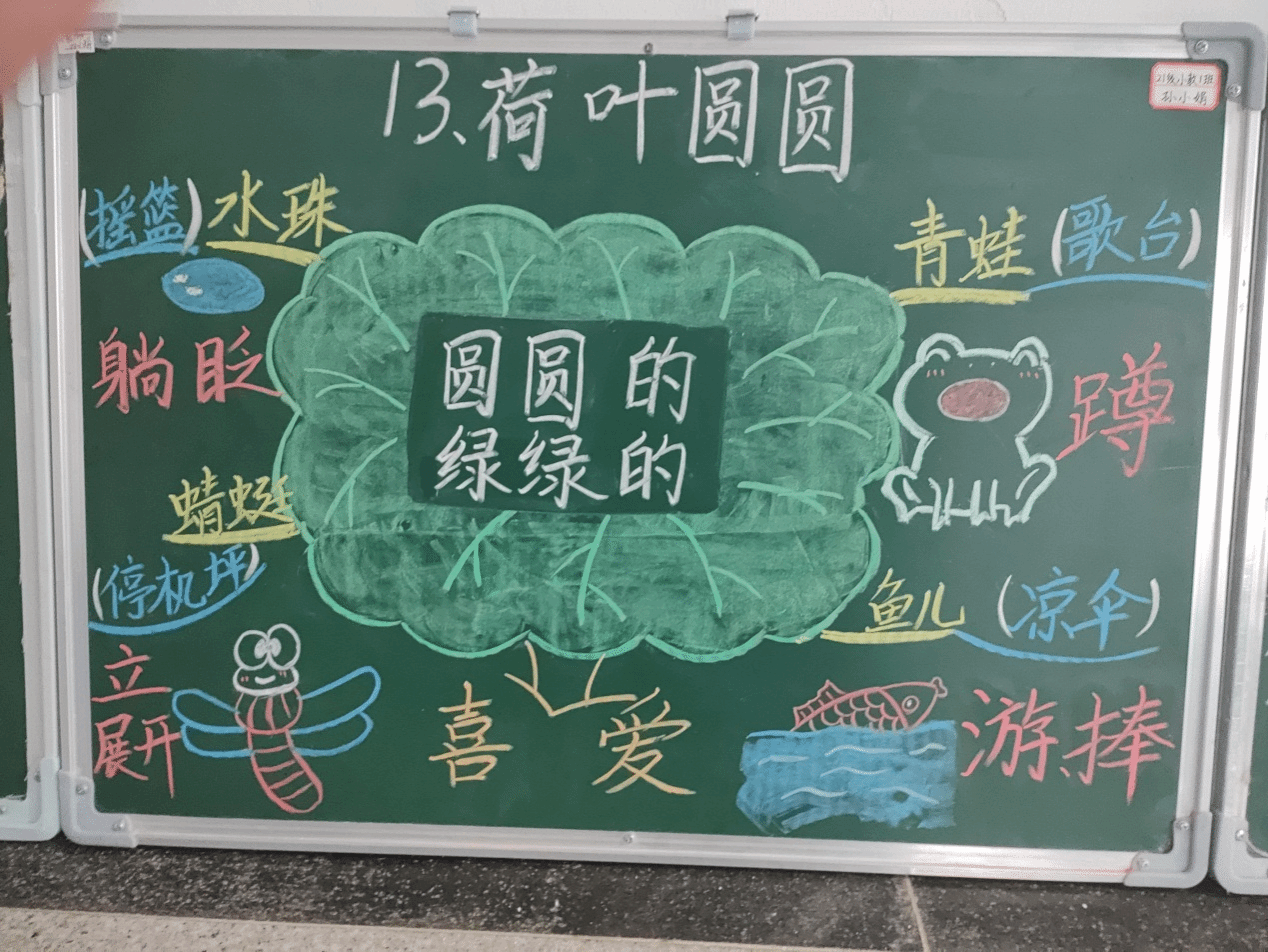 13、荷叶圆圆
21级小教1班
孙小娟
(摇篮)水珠
躺 眨
青蛙(歌台)
蹲
圆圆的
绿绿的
蜻蜓
(停机坪)
立
展开
鱼儿(凉伞)
游、捧
喜爱